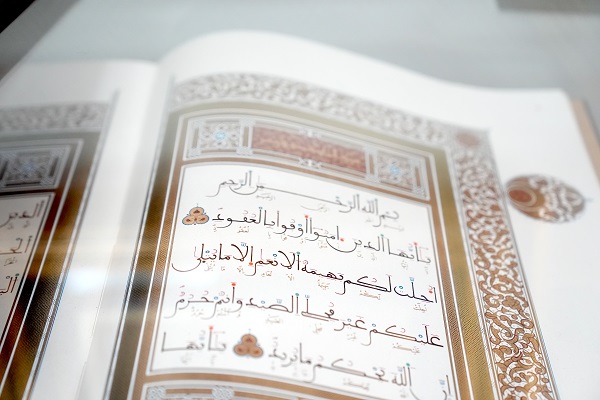 بسم الله الرحمن الرحيم
يأيها الذين امنوا اوفوا بالعقود
احلت لكم بهيمة الانعم الا ما يتلى
عليكم غير محلى الصيد وانتم حرم
ان الله يحكم ما يريد يأيها
الذين